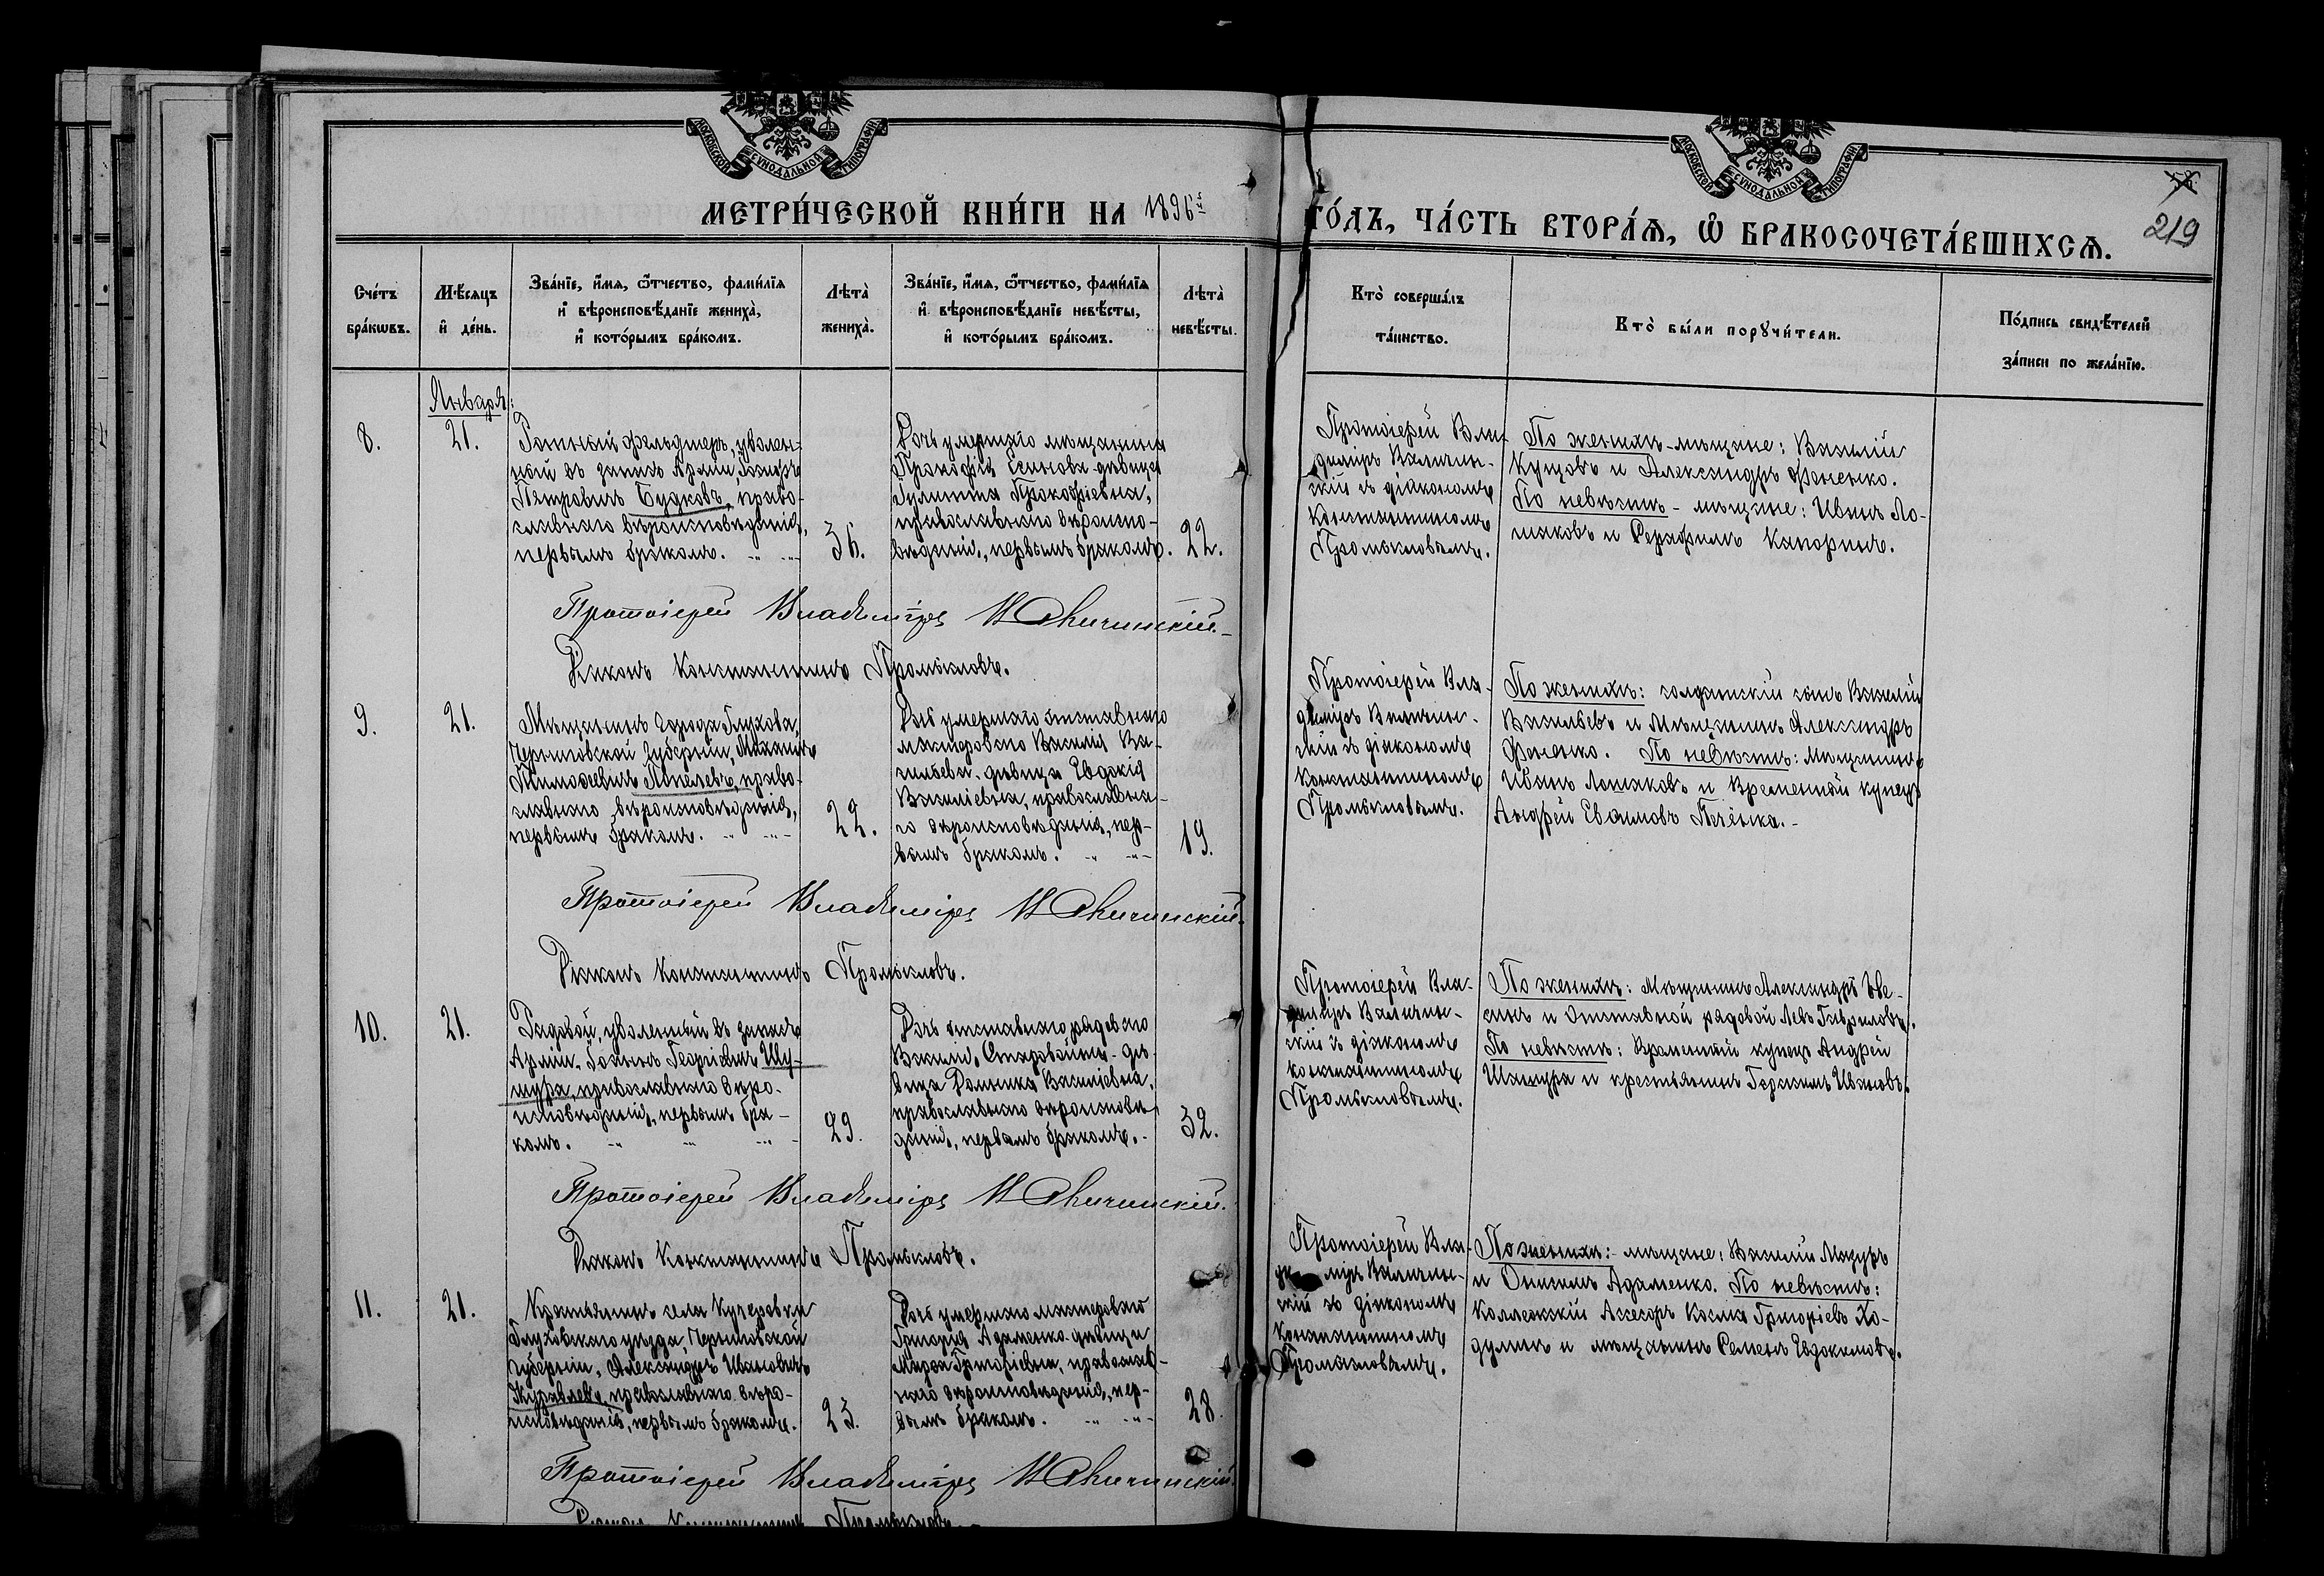 МОСКОВСКОЙ СѴНОДАЛЬНОЙ ТИПОГРАФІИ
МОСКОВСКОЙ СѴНОДАЛЬНОЙ ТИПОГРАФІИ
МЕТРИ́ЧЕСКОЙ КНИ́ГИ НА 1896й
ГО́ДЪ, ЧА́СТЬ ВТОРА́Ѧ, Ѡ҆ БРАКОСОЧЕТА́ВШИХСѦ.
219
Сче́тъ
бра́кѡвъ.
Мѣ́сяцъ
и҆ де́нь.
Зва́нїе, и҆́мѧ, ѻ҆́тчество, фами́лїѧ
и҆ вѣроисповѣ́данїе жениха̀,
и҆ кото́рымъ бра́комъ.
Лѣта̀
жениха̀.
Зва́нїе, и҆́мѧ, ѻ҆́тчество, фами́лїѧ
и҆ вѣроисповѣ́данїе невѣ́сты,
и҆ кото́рымъ бра́комъ.
Лѣта̀
невѣ́сты.
Кто̀ соверша́лъ
та́инство.
Кто̀ бы́ли порꙋчи́тели.
По́дпись свидѣ́телей
за́писи по жела́нїю.
Января:
8.
21.
Ротный фельдшеръ, уволен-
ный въ запасъ Арміи,
Петровичъ Будковъ, право-
славнаго вѣроисповѣданія,
первымъ бракомъ.
36.
Дочь умершаго мѣщанина
Прокофія дѣвица
Прокофіевна,
православнаго вѣроиспо-
вѣданія, первымъ бракомъ.
22.
Протоіерей Вла-
диміръ Величин-
скій съ діакономъ
Константиномъ
Промысловымъ.
По женихѣ - мѣщане: Василій
Купцовъ и Александръ Фененко.
По невѣстѣ - мѣщане: Иванъ Ло-
маковъ и Серафимъ Капоринъ.
Протоіерей Владиміръ Величинскій.
Діаконъ Константинъ Промысловъ.
9.
21.
Мѣщанинъ города Глухова,
Черниговской Губерніи,
Тимофеевичъ право-
славнаго вѣроисповѣданія,
первымъ бракомъ.
22.
Дочь умершаго отставнаго
мастероваго Василія Ва-
сильева дѣвица Евдокія
Василіевна, православна-
го вѣроисповѣданія, пер-
вымъ бракомъ.
19.
Протоіерей Вла-
диміръ Величин-
скій съ діакономъ
Константиномъ
Промысловымъ.
По женихѣ: солдатскій сынъ Василій
Васильевъ и Мѣщанинъ Александръ
Фененко. По невѣстѣ: Мѣщанинъ
Иванъ Ломаковъ и Временной купецъ
Андрей Евфимовъ
Протоіерей Владиміръ Величинскій.
Діаконъ Константинъ Промысловъ.
10.
21.
Рядовой, уволенный въ запасъ
Арміи, Георгіевичъ Шу-
мура, православнаго вѣро-
исповѣданія, первымъ бра-
комъ.
29.
Дочь отставнаго рядоваго
Василія Старовойта - дѣ-
вица Домника Василіевна,
православнаго вѣроисповѣ-
данія, первымъ бракомъ.
32.
Протоіерей Вла-
диміръ Величин-
скій съ діакономъ
Константиномъ
Промысловымъ.
По женихѣ: Мѣщанинъ Александръ
и Отставной рядовой Левъ Гавриловъ.
По невѣстѣ: Временный купецъ Андрей
и крестьянинъ Герасимъ Ивановъ.
Протоіерей Владиміръ Величинскій.
Діаконъ Константинъ Промысловъ.
11.
21.
Крестьянинъ села Кучеровки
Глуховскаго уѣзда, Черниговской
Губерніи, Александръ Ивановичъ
Журавлевъ, православнаго вѣро-
исповѣданія, первымъ бракомъ.
23.
Дочь умершаго мастероваго
Григорія Адаменко дѣвица
Марія Григоріевна, православ-
наго вѣроисповѣданія, пер-
вымъ бракомъ.
28.
Протоіерей Вла-
диміръ Величин-
скій съ діакономъ
Константиномъ
Промысловымъ.
По женихѣ: - мѣщане: Василій Мазуръ
и Онисимъ Адаменко. По невѣстѣ:
Коллежскій Ассесоръ Косма Григоріевъ Хо-
дулинъ и мѣщанинъ Семенъ Евдокимовъ.
Протоіерей Владиміръ Величинскій.
Діаконъ Константинъ Промысловъ.